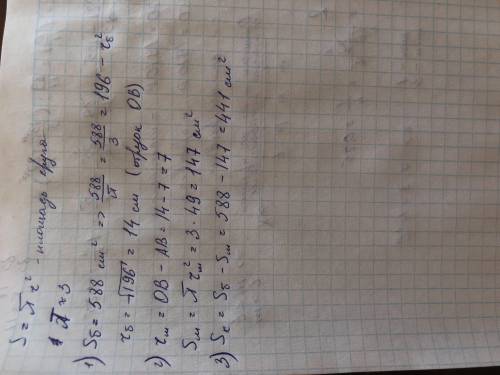 S = πr² - площадь круга
π ≈ 3
1) Sб = 588 см² => 588/π = 588/3 = 196 - rб²
rб = √196 = 14 см (отрезок OB)
2) rм = OB - AB = 14 - 7 = 7
Sм = πrм² = 3 · 49 = 147 см²
3) Sк = Sб - Sм = 588 - 147 = 441 см²